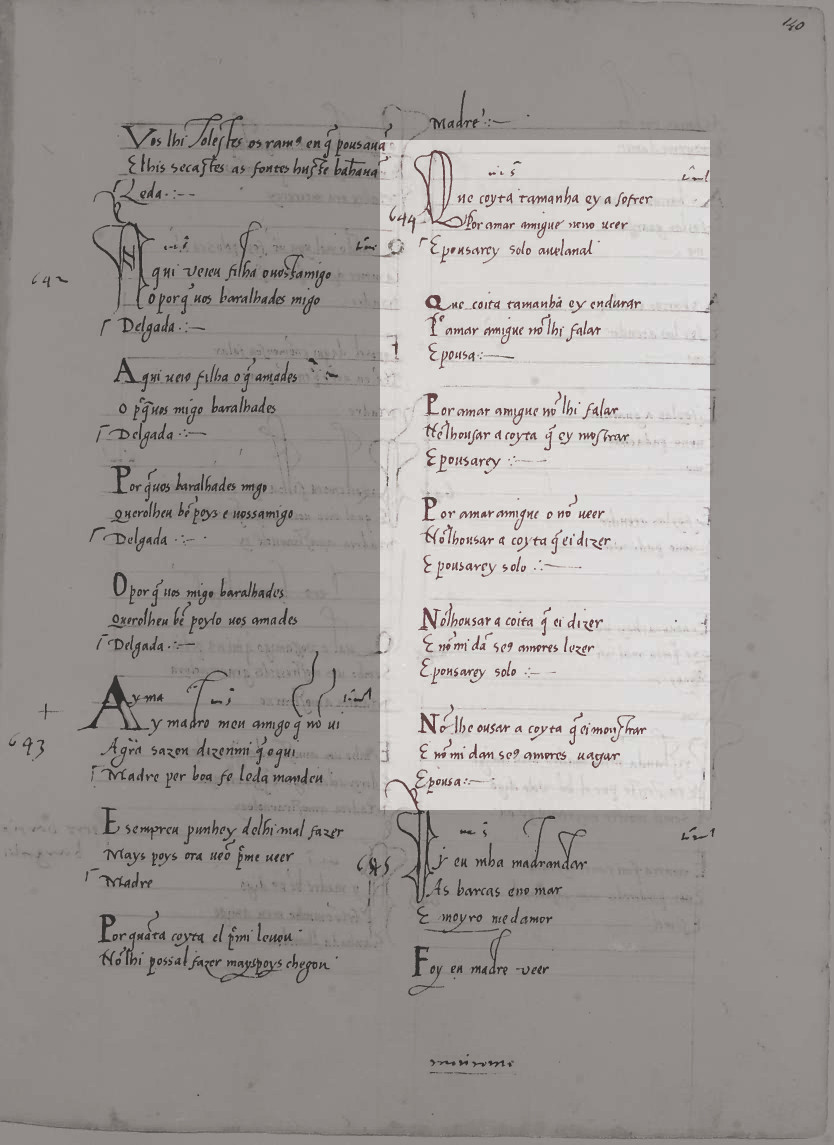 140
Vos lhi tolestes os ram9 en q̃ pousauã
E lhis secastes as fontes hu sse banhauã
Leda
642
Aqui ueieu filha o uossamigo
O por q̃ uos baralhades migo
Delgada
Aqui ueio filha o q̃ amades
o p̃ q̃ uos migo baralhades
Delgada
Por q̃uos baralhades migo
querolheu bẽ poys e uossamigo
Delgada
O por q̃ uos migo baralhades
querolheu bẽ poylo uos amades
Delgada
643
Ay ma
y madro meu amigo q̃ nõ ui
A grã sazon dizenmi q̃ e qui
Madre per boa fe leda mandeu
E sempreu punhey delhi mal fazer
Mays poys ora ueo p̃me ueer
Madre
Por quãta coyta el p̃mi leuou
Nõ lhi possal fazer mays poys chegou
Madre
644
Que coyta tamanha ey a sofrer
Por amar amigue nono ueer
E pousarey solo auelanal
Que coita tamanha ey endurar
Por amar amigue nõ lhi falar
E pousa
Por amar amigue nõ lhi falar
Nẽ lhousar a coyta q̃ ey mostrar
E pousarey
Por amar amigue o nõ ueer
Nõ lhousar a coyta q̃ ei dizer
E pousarey solo
Nõ lhousar a coita q̃ ei dizer
E nõ mi dã se9 amores lezer
E pousarey solo
Nõ lhe ousar a coyta q̃ ei monstrar
E nõ mi dan se9 amores uagar
E pousa
645
Vy eu mha madrandar
As barcas eno mar
E moyro me damor
Foy eu madre ueer